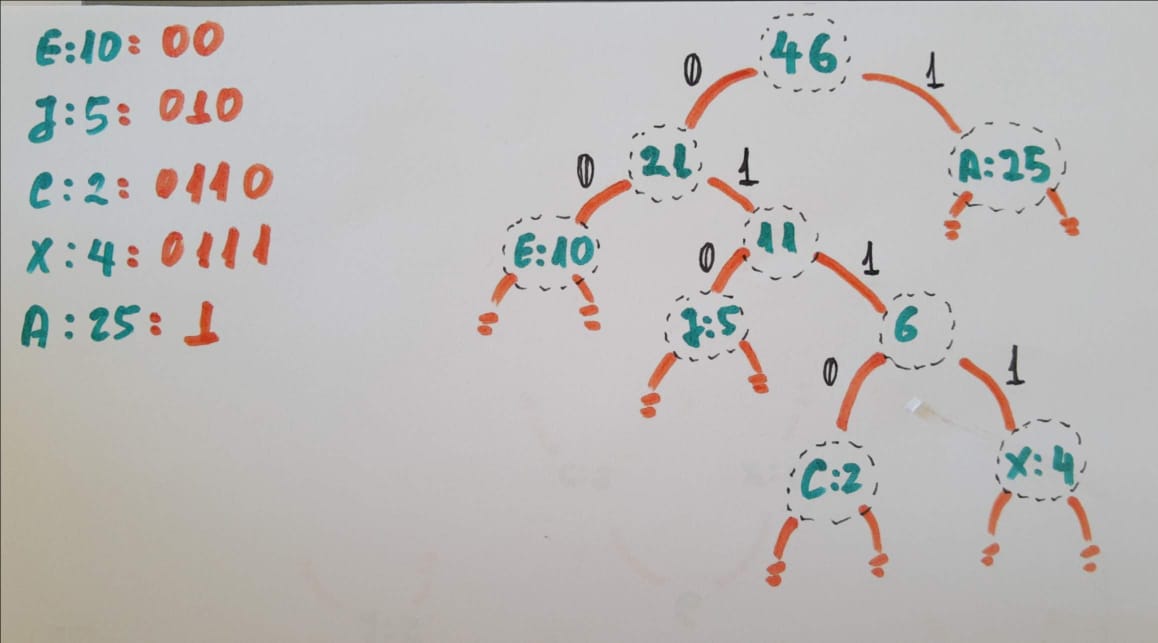 E:10: 00
J:5: 010
C:2: 0110
X:4: 0111
A:25: 1
46
0 1
21 A:25
0 1
E:10 11
0 1
J:5 6
0 1
C:2 X:4